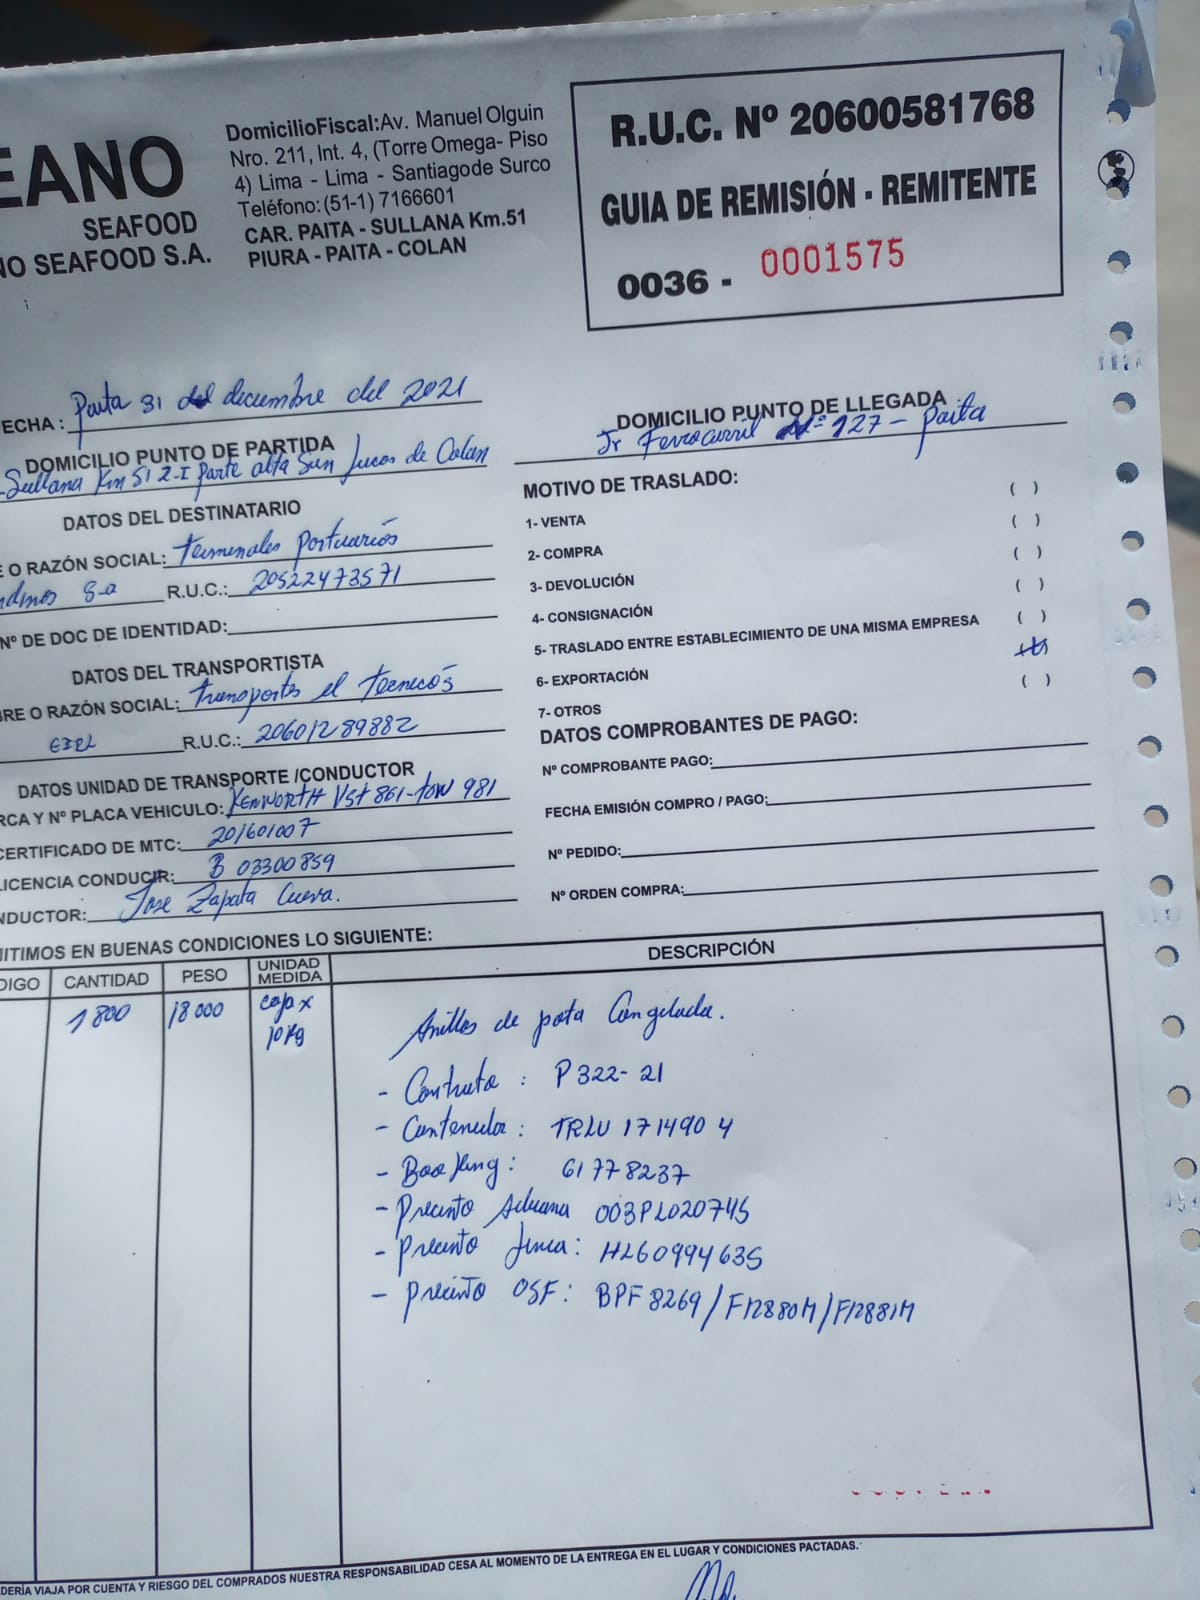 EANO
SEAFOOD
NO SEAFOOD S.A.
DomicilioFiscal:Av. Manuel Olguin
Nro. 211, Int. 4, (Torre Omega- Piso
4) Lima - Lima - Santiagode Surco
Teléfono:(51-1) 7166601
CAR. PAITA - SULLANA Km.51
PIURA - PAITA - COLAN
R.U.C. Nº 20600581768
GUIA DE REMISIÓN - REMITENTE
0036 - 0001575
ECHA : Paita 31 del diciembre del 2021
DOMICILIO PUNTO DE PARTIDA
Sullana Km 51 2-I Parte alta San Lucas de Colan
DATOS DEL DESTINATARIO
E O RAZÓN SOCIAL: Terminales Portuarios
ndinos S.a R.U.C.: 20522473571
Nº DE DOC DE IDENTIDAD:
DATOS DEL TRANSPORTISTA
BRE O RAZÓN SOCIAL: Transportes el Tecnecos
EIRL R.U.C.: 20601289882
DATOS UNIDAD DE TRANSPORTE /CONDUCTOR
RCA Y Nº PLACA VEHICULO: KENWORTH V5T 861-TOW 981
CERTIFICADO DE MTC: 201601007
LICENCIA CONDUCIR: B 03300859
NDUCTOR: Jose Zapata Cueva.
DOMICILIO PUNTO DE LLEGADA
Jr Ferrocarril Nº 127 - Paita
MOTIVO DE TRASLADO:
1- VENTA ( )
2- COMPRA ( )
3- DEVOLUCIÓN ( )
4- CONSIGNACIÓN ( )
5- TRASLADO ENTRE ESTABLECIMIENTO DE UNA MISMA EMPRESA ( )
6- EXPORTACIÓN
7- OTROS ( )
DATOS COMPROBANTES DE PAGO:
Nº COMPROBANTE PAGO:
FECHA EMISIÓN COMPRO / PAGO:
Nº PEDIDO:
Nº ORDEN COMPRA:
MITIMOS EN BUENAS CONDICIONES LO SIGUIENTE:
DIGO CANTIDAD PESO UNIDAD MEDIDA DESCRIPCIÓN
1800 18000 caja x 10Kg Anillas de pota Congelada.
- Contrato : P322-21
- Contenedor : TRLU 171490 4
- Booking : 61778237
- Precinto Aduana 003PL020745
- Precinto Linea : HL60994635
- Precinto OSF : BPF8269/F12880M/F12881M
DERÍA VIAJA POR CUENTA Y RIESGO DEL COMPRADOS NUESTRA RESPONSABILIDAD CESA AL MOMENTO DE LA ENTREGA EN EL LUGAR Y CONDICIONES PACTADAS.